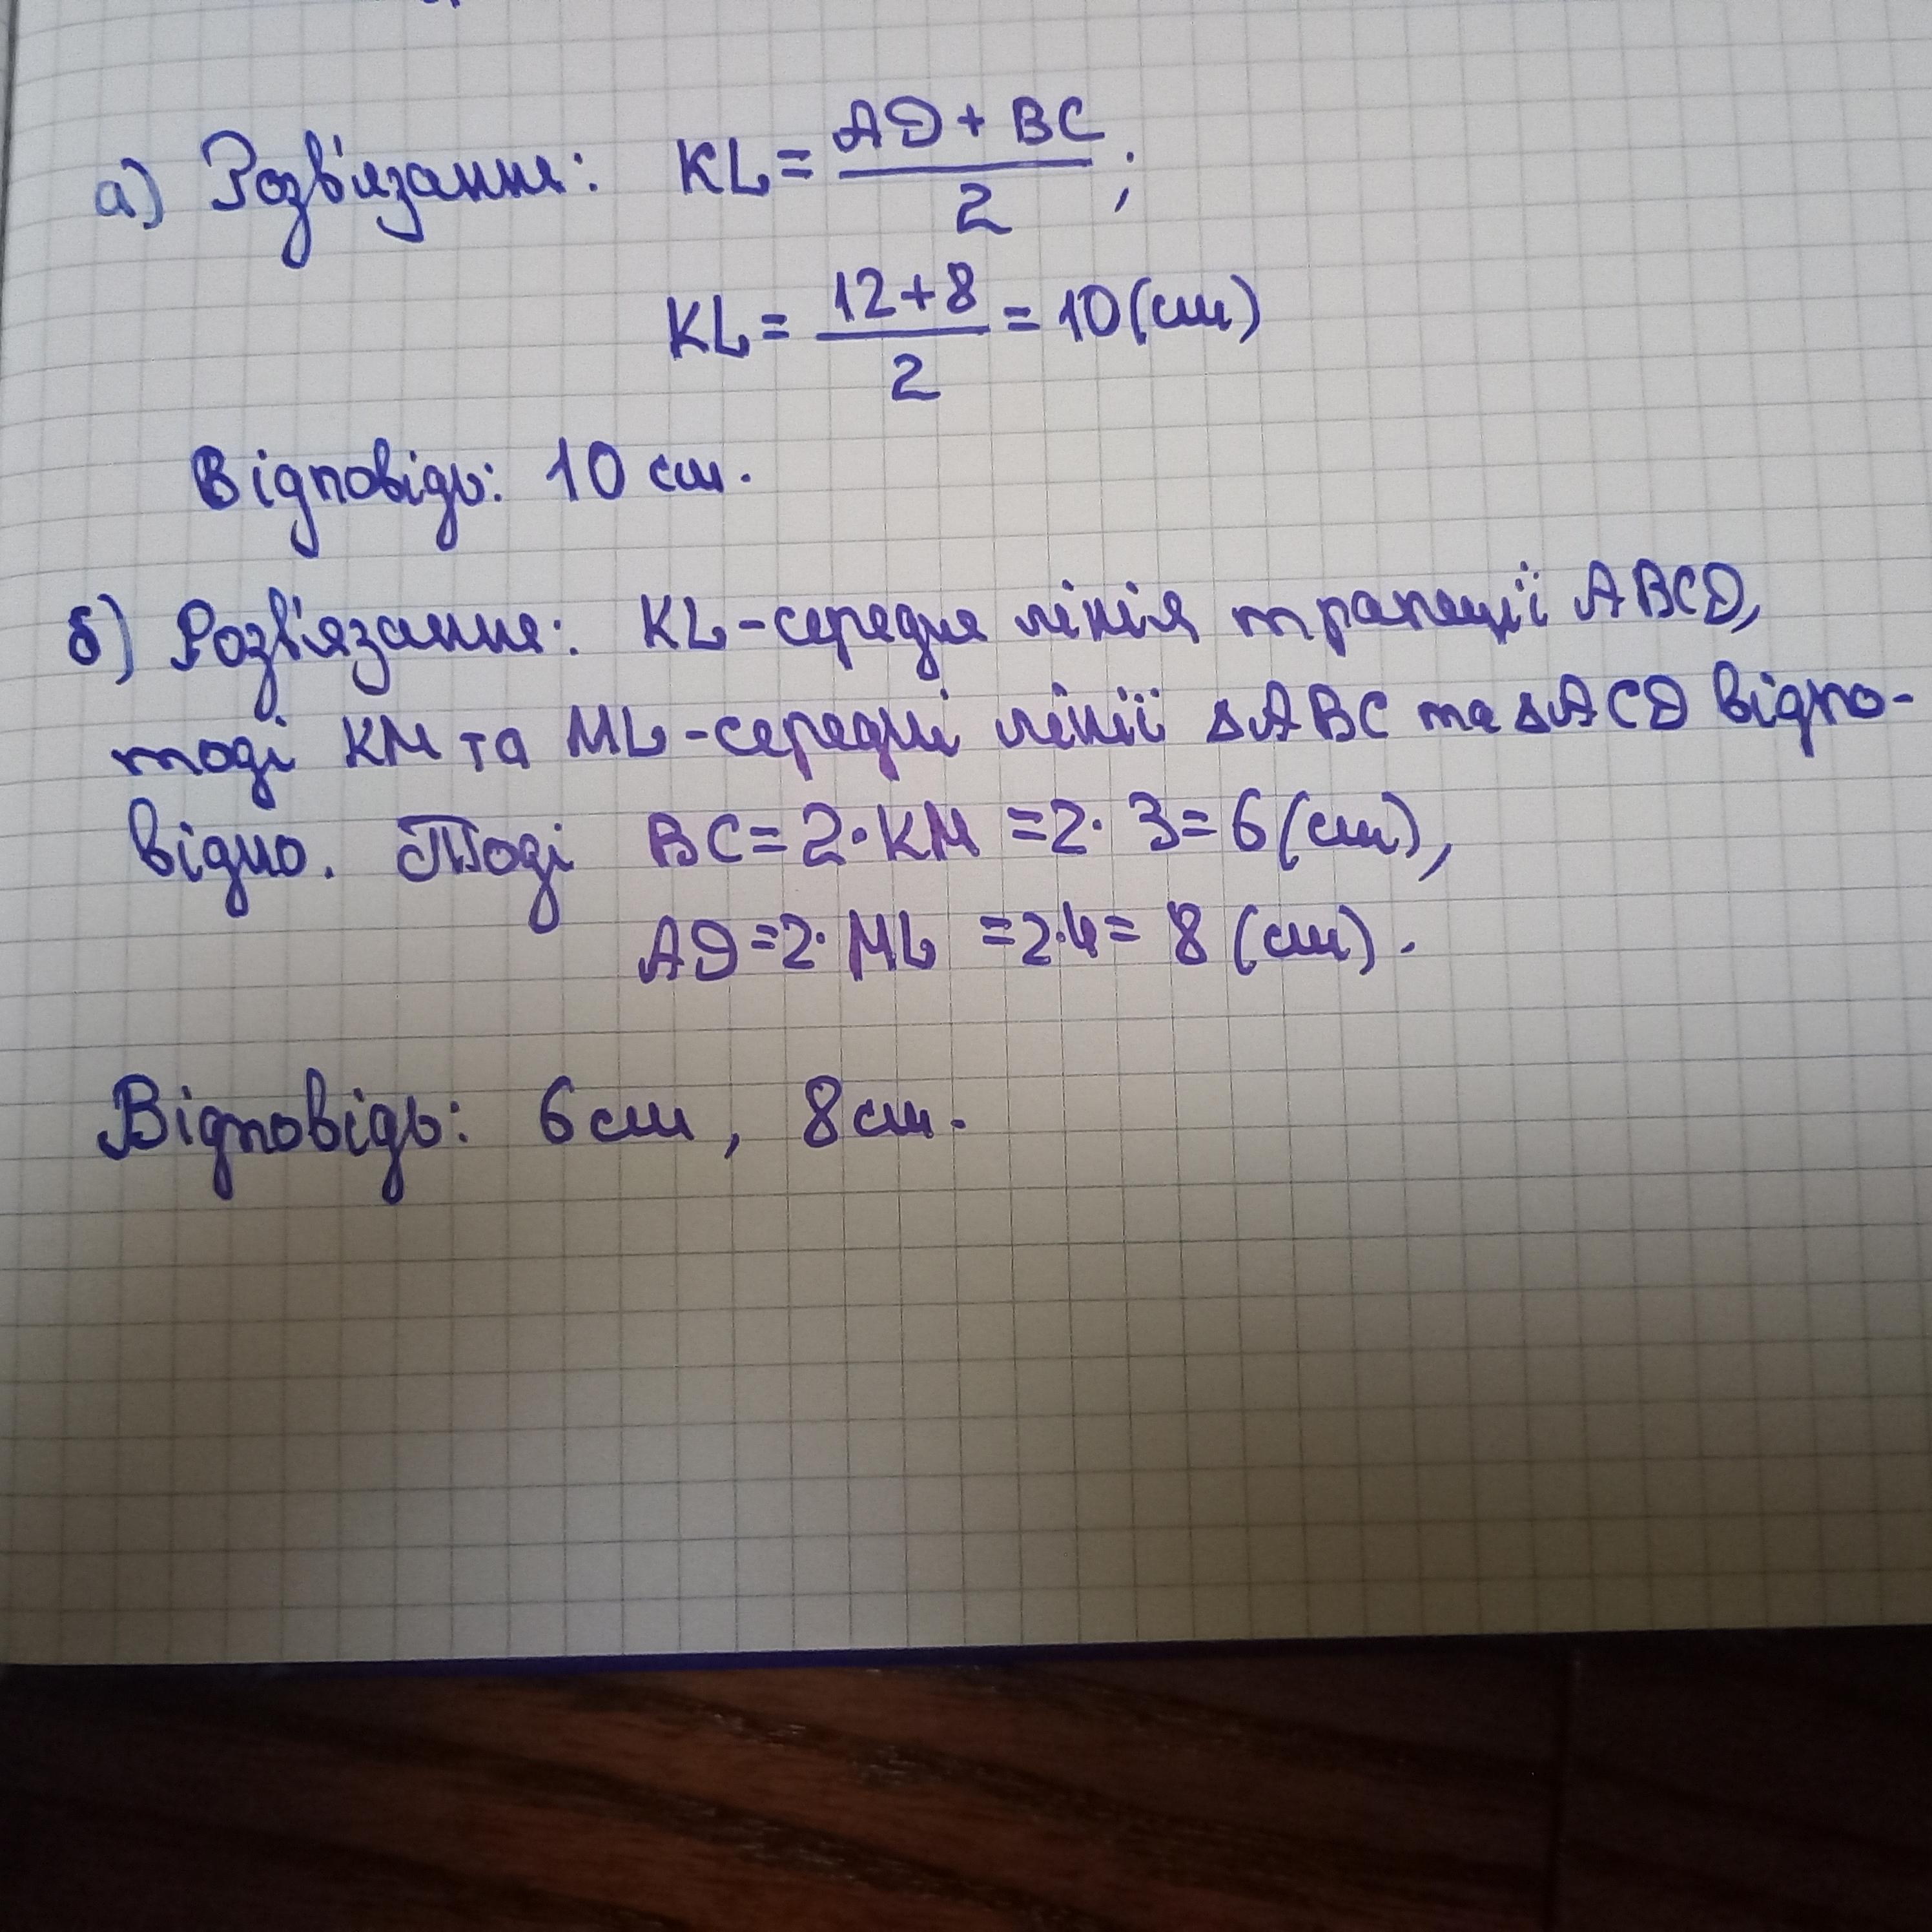 а) Розв'язання: KL = (AD + BC) / 2 ;
KL = (12+8) / 2 = 10 (см)
Відповідь: 10 см.
б) Розв'язання: KL - середня лінія трапеції ABCD,
тоді KM та ML - середні лінії ΔABC та ΔACD відпо-
відно. Тоді BC = 2·KM = 2· 3 = 6 (см),
AD = 2· ML = 2·4 = 8 (см).
Відповідь: 6 см, 8 см.